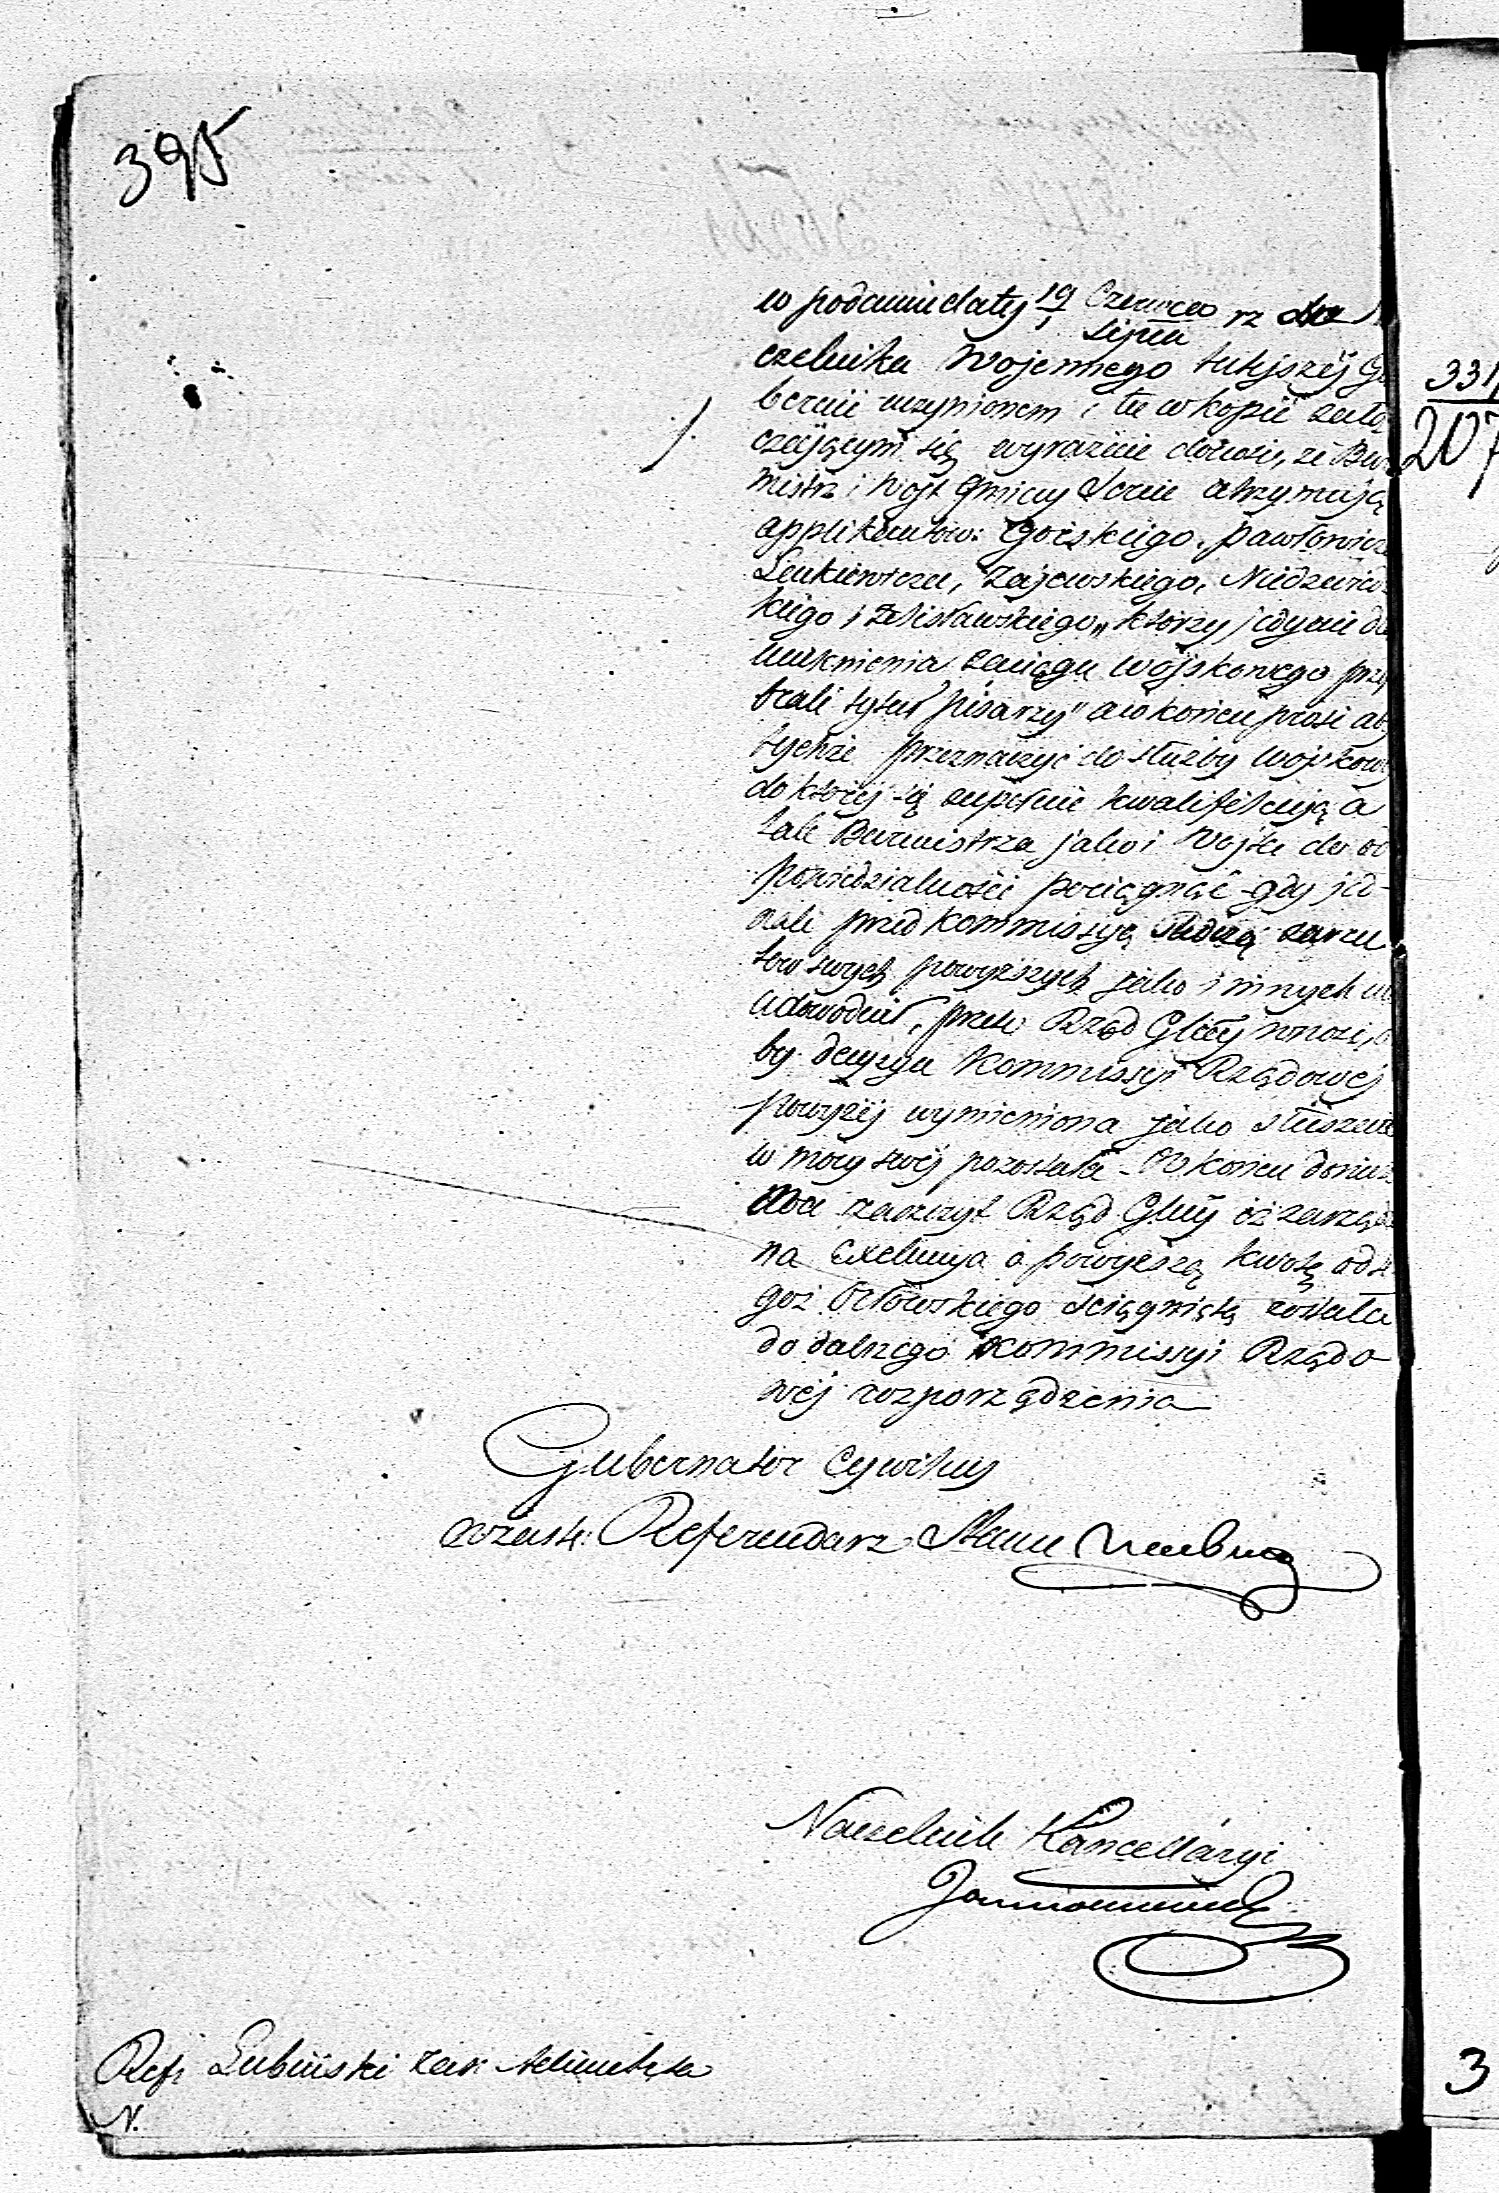 395
w podaniu daty 19/1 Czerwca/Lipca rz do Na
czelnika Wojennego tutejszéj Gu
bernii uczynionem i tu w kopii załą
czającym się wyraźnie donosi, że Bur
mistrz i Wójt Gminy Serie utrzymują
applikantów: Górskiego, Pawłowicza
Lenkiewicza, Zajewskiego, Niedzwiedz
kiego i Żelisławskiego,, którzy jedynie dla
uniknienia zaciągu wojskowego przy
brali tytuł pisarzy" a w końcu prosi aby
tychże przeznaczyć do służby wojskowej
do któréj się zupełnie kwalifikują a
tak Burmistrza jako i Wójta do od
powiedzialności pociągnąć gdy jed-
nak przed Kommissyą Śledczą zarzu
tów swych powyższych jako i innych nie
udowodnił, przeto Rząd Glny wnosi, a
by decyzya Kommissyi Rządowej
powyżéj wymieniona jako słuszna
w mocy swéj pozostała - W końcu donieść
ma zaszczyt Rząd Glny iż zarządzo
na exekucya o powyższą kwotę od te
goż Orłowskiego ściągniętą została
do dalszego Kommissyi Rządo-
wéj rozporządzenia
Gubernator Cywilny
w zast: Referendarz Stanu
Naczelnik Kancellaryi
Ref. Lubiński zas:
N.
331
207
3